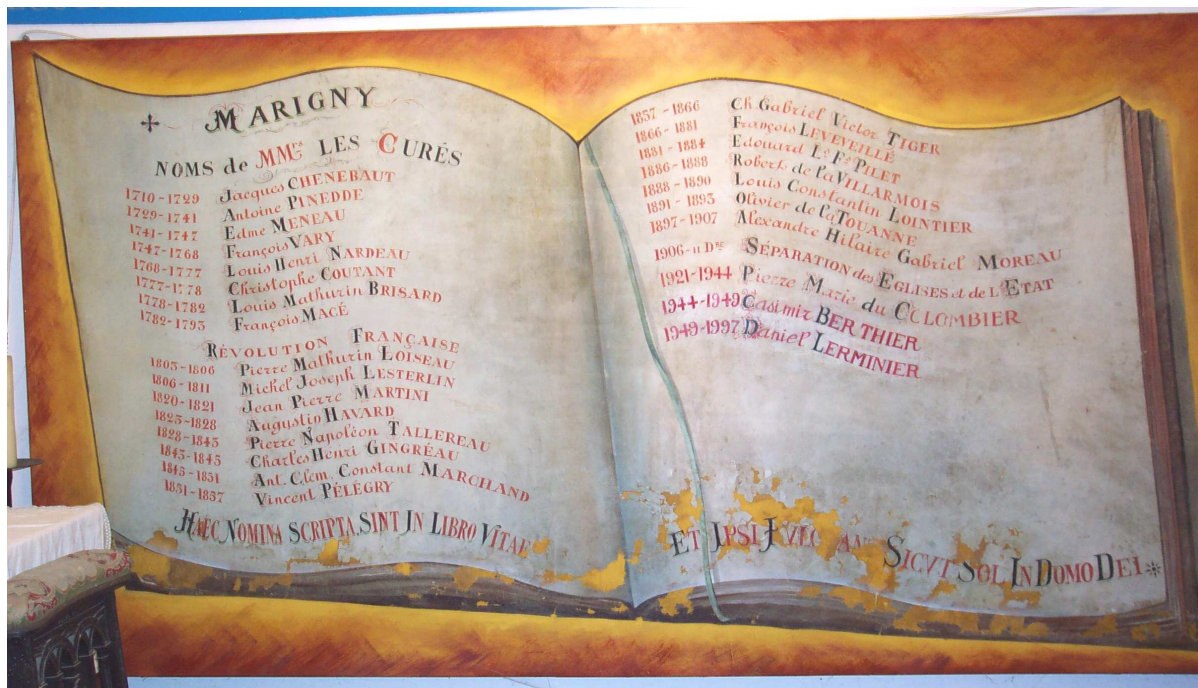 MARIGNY
NOMS de MM.rs LES CURÉS
1710-1729 Jacques CHENEBAUT
1729-1741 Antoine PINEDDE
1741-1747 Edme MENEAU
1747-1768 François VARY
1768-1777 Louis Henri NARDEAU
1777-1778 Christophe COUTANT
1778-1782 Louis Mathurin BRISARD
1782-1793 François MACÉ
RÉVOLUTION FRANÇAISE
1803-1806 Pierre Mathurin LOISEAU
1806-1811 Michel Joseph LESTERLIN
1820-1821 Jean Pierre MARTINI
1823-1828 Augustin HAVARD
1828-1843 Pierre Napoléon TALLEREAU
1843-1845 Charles Henri GINGRÉAU
1845-1851 Ant. Clém. Constant MARCHAND
1851-1857 Vincent PÉLÉGRY
HAEC NOMINA SCRIPTA SINT IN LIBRO VITAE
1857-1866 Ch. Gabriel Victor TIGER
1866-1881 François LEVEVEILLÉ
1881-1884 Edouard Ls Fs PILET
1886-1888 Robert de la VILLARMOIS
1888-1890 Louis Constantin LOINTIER
1891-1893 Olivier de la TOUANNE
1897-1907 Alexandre Hilaire Gabriel MOREAU
1906-11 Dre SÉPARATION des EGLISES et de L'ETAT
1921-1944 Pierre Marie du COLOMBIER
1944-1949 Casimir BERTHIER
1949-1997 Daniel LERMINIER
ET IPSI SICVT SOL IN DOMO DEI